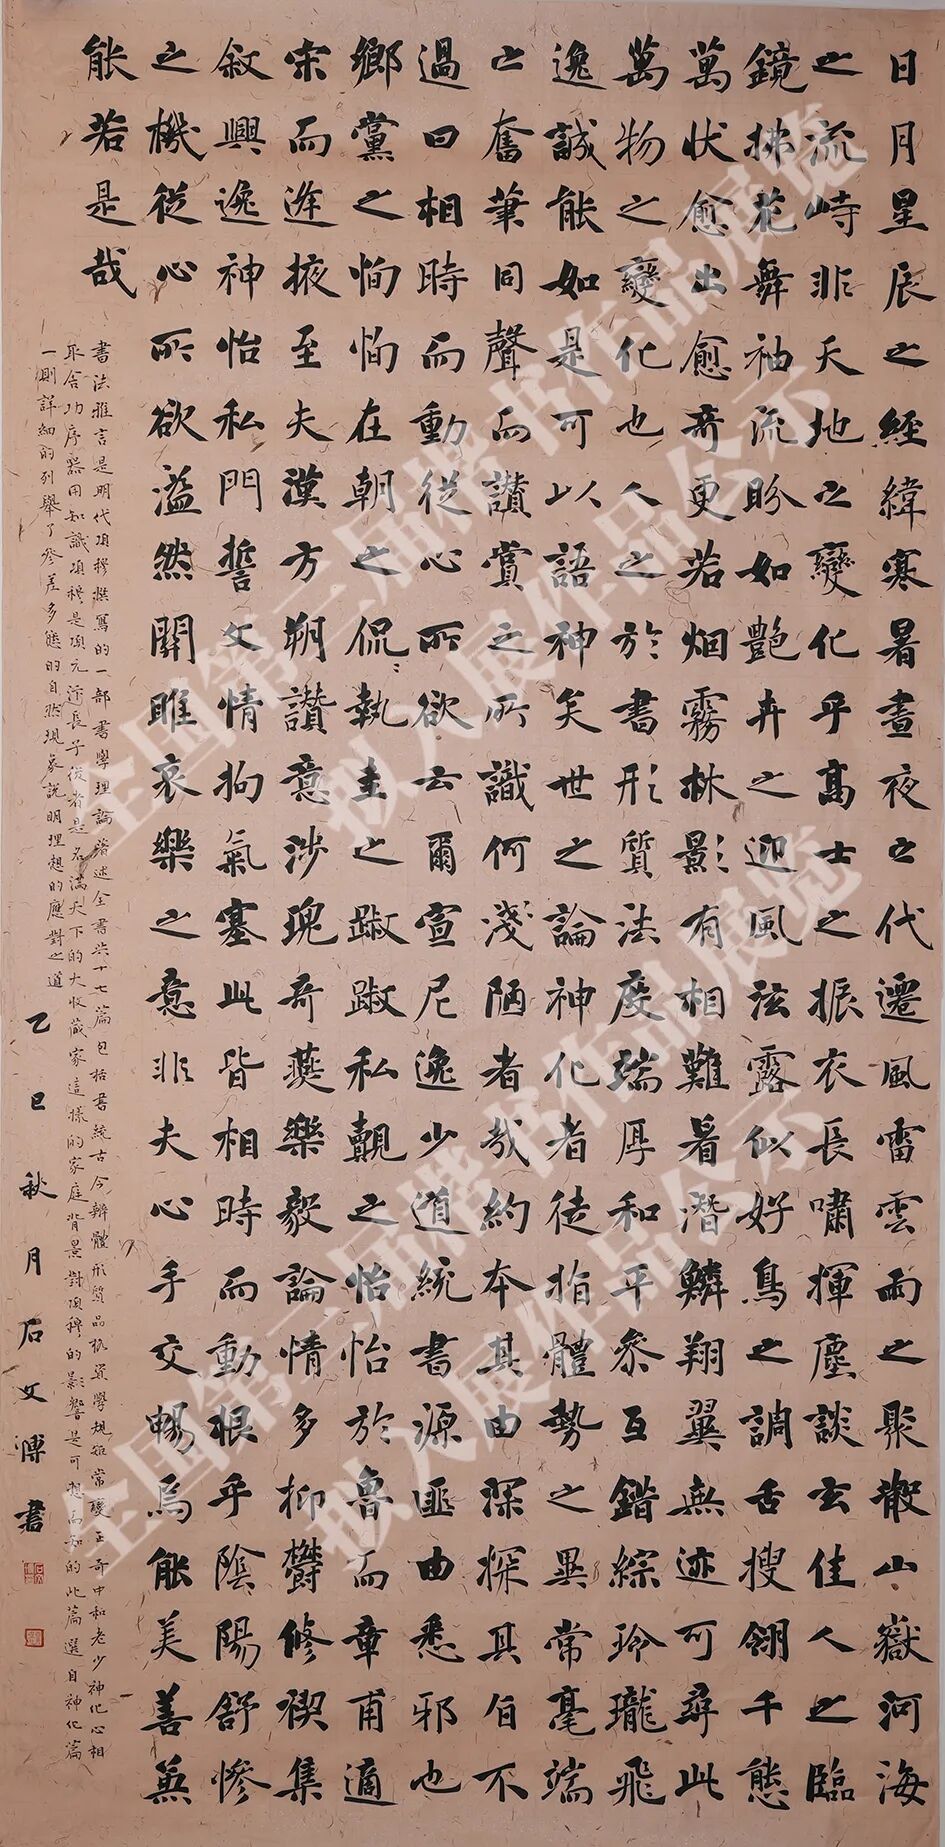 日月星辰之經緯寒暑晝夜之代遷風雷雲雨之聚散山嶽河海
之流峙非天地之變化乎高士之振衣長嘯揮麈談玄佳人之臨
鏡拂花舞袖流盼如艷卉之迎風泫露似好鳥之調舌搜翎千態
萬狀愈出愈奇更若烟霧林影有相難着潛鱗翔翼無迹可尋此
萬物之變化也人之於書形質法度端厚和平參互錯綜玲瓏飛
逸誠能如是可以語神矣世之論神化者徒指體勢之異常毫端
之奮筆同聲而讃賞之所識何淺陋者哉約本其由深探其旨不
過曰相時而動從心所欲云爾宣尼逸少道統書源匪由悉邪也
鄉黨之恂恂在朝之侃〻執圭之踧踧私覿之怡怡於魯而章甫適
宋而逢掖至夫漢方朔讃意涉瑰奇燕樂毅論情多抑欝修禊集
敘興逸神怡私門誓文情拘氣塞此皆相時而動根乎陰陽舒慘
之機從心所欲溢然關雎哀樂之意非夫心手交暢焉能美善兼
能若是哉
書法雅言是明代項穆撰寫的一部書學理論著述全書共十七篇包括書統古今辨體形質品格資學規矩常變正奇中和老少神化心相
取舍功序器用知識項穆是項元汴長子後者是名滿天下的大收藏家這樣的家庭背景對項穆的影響是可想而知的此篇選自神化篇
一則詳細的列舉了參差多態的自然現象説明理想的應對之道
乙巳秋月石文溥書
全国第三届楷书作品展览
拟入展作品公示
全国第三届楷书作品展览
拟入展作品公示